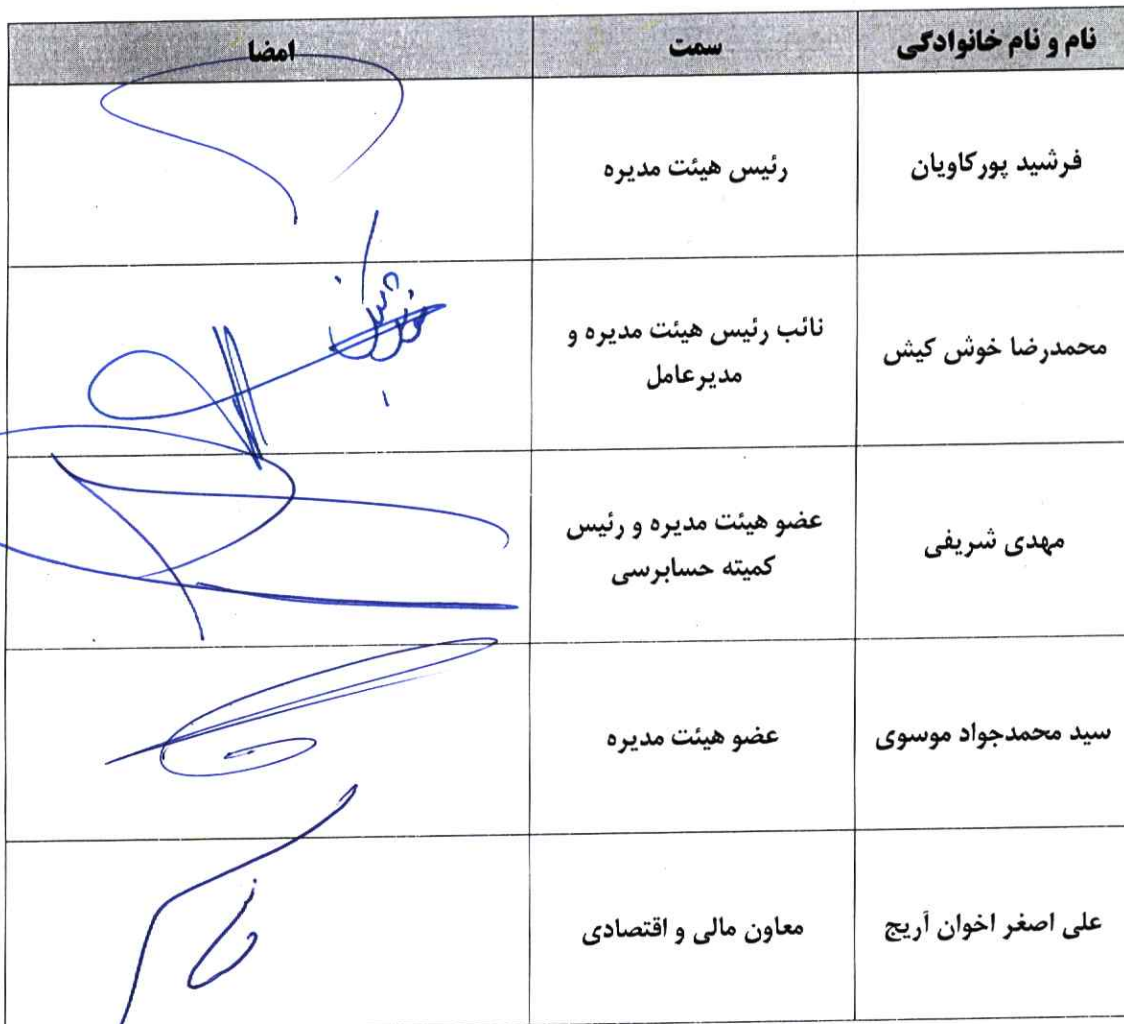 نام و نام خانوادگی سمت امضا
فرشید پورکاویان رئیس هیئت مدیره
محمدرضا خوش کیش نائب رئیس هیئت مدیره و
مدیرعامل
مهدی شریفی عضو هیئت مدیره و رئیس
کمیته حسابرسی
سید محمدجواد موسوی عضو هیئت مدیره
علی اصغر اخوان آریج معاون مالی و اقتصادی